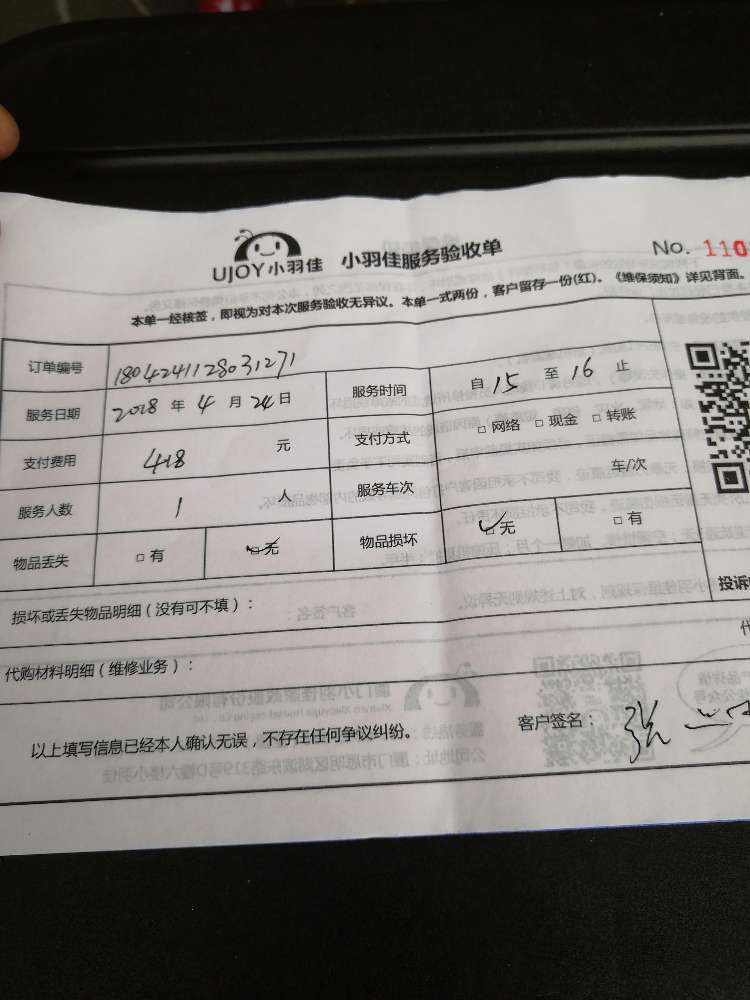 UJOY小羽佳 小羽佳服务验收单 No. 110
本单一经核签，即视为对本次服务验收无异议。本单一式两份，客户留存一份(红)。《维保须知》详见背面。
订单编号 1804241128031271
服务日期 2018 年 4 月 24 日 服务时间 自 15 至 16 止
支付费用 418 元 支付方式 □ 网络 □ 现金 □ 转账
服务人数 1 人 服务车次 车/次
物品丢失 □ 有 □ 无 物品损坏 □ 无 □ 有
损坏或丢失物品明细（没有可不填）：
投诉
代购材料明细（维修业务）：
以上填写信息已经本人确认无误，不存在任何争议纠纷。 客户签名： 张